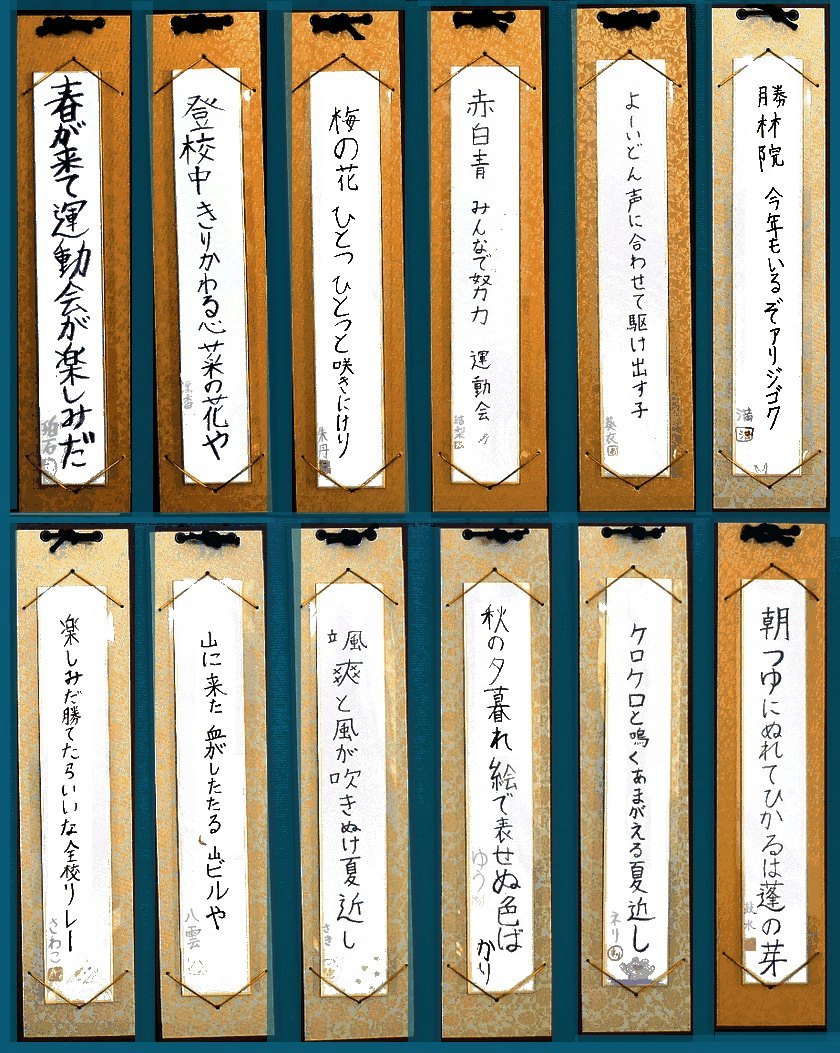 勝林院 今年もいるぞアリジゴク
満
よーいどん声に合わせて駆け出す子
葵衣
赤白青 みんなで努力 運動会
結梨
梅の花 ひとつひとつと咲きにけり
朱丹
登校中きりかわる心菜の花や
春が来て運動会が楽しみだ
朝つゆにぬれてひかるは蓬の芽
ケロケロと鳴くあまがえる夏近し
ネリ
秋の夕暮れ絵で表せぬ色ばかり
ゆう
颯爽と風が吹きぬけ夏近し
さき
山に来た血がしたたる山ビルや
八雲
楽しみだ勝てたらいいな全校リレー
さわこ